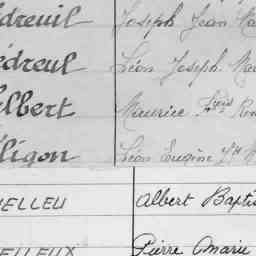 dreuil Joseph Jean Ma
édreul Léon Joseph Mau
lbert Maurice Louis Ren
ligon Léon Eugène Jh M
ELLEU Albert Baptis
ELLEUX Pierre Marie